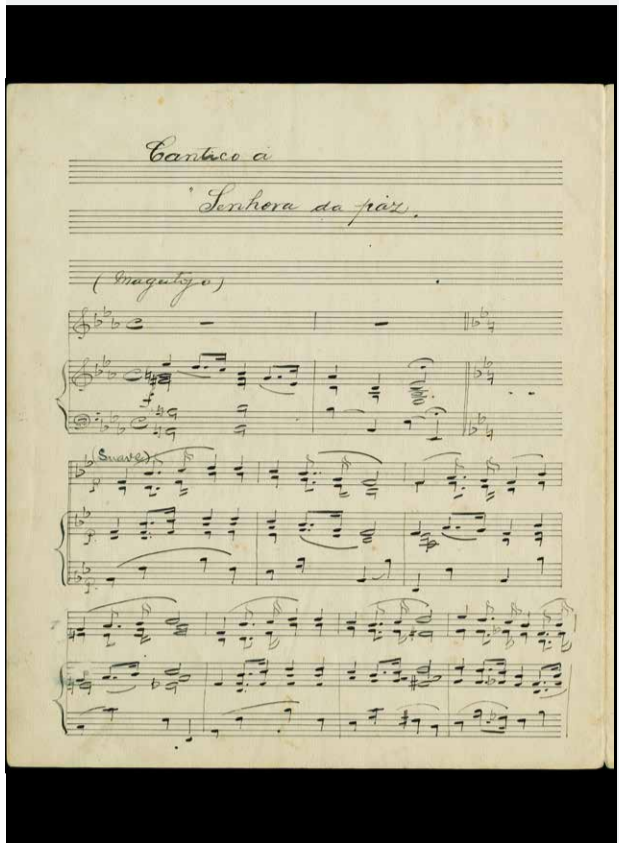 Cantico á
Senhora da paz.
(Magestoso)
(Suave)